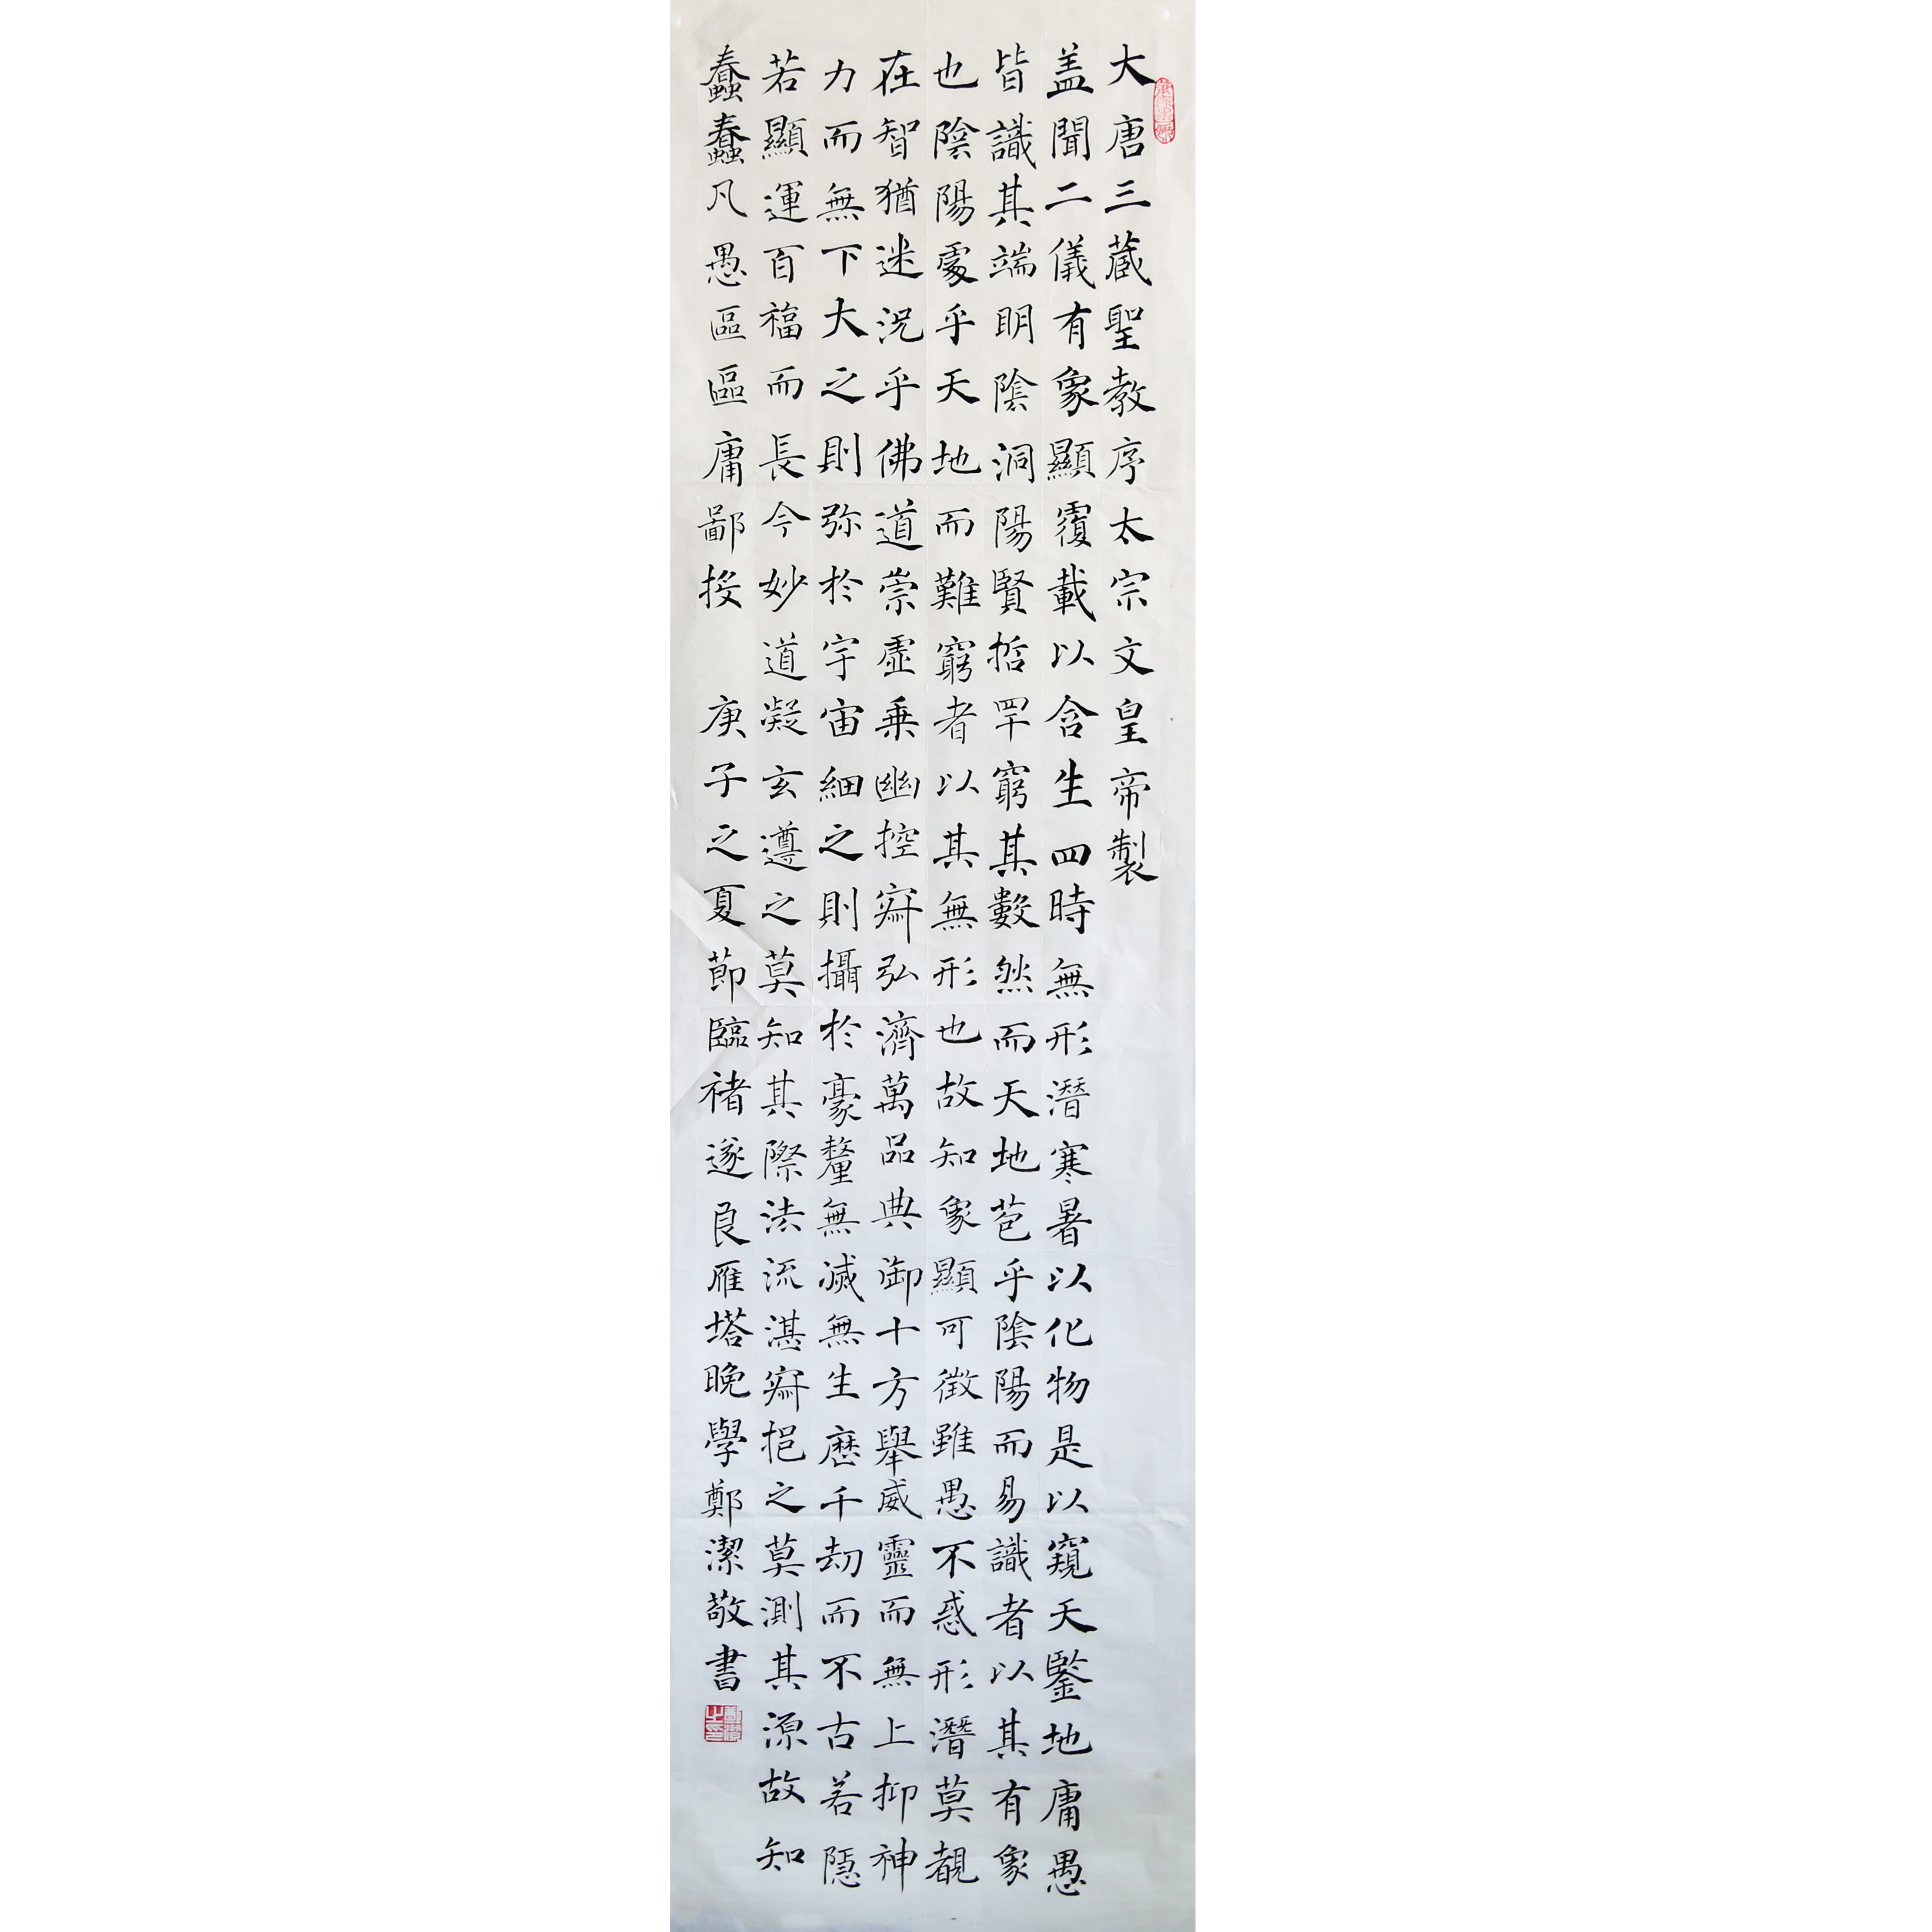 大唐三蔵聖教序太宗文皇帝製
盖聞二儀有象顯覆載以含生四時無形潛寒暑以化物是以窺天鑒地庸愚
皆識其端明陰洞陽賢哲罕窮其數然而天地苞乎陰陽而易識者以其有象
也陰陽處乎天地而難窮者以其無形也故知象顯可徵雖愚不惑形潛莫覩
在智猶迷況乎佛道崇虛乗幽控寂弘濟萬品典御十方舉威靈而無上抑神
力而無下大之則弥於宇宙細之則攝於豪釐無滅無生歷千劫而不古若隱
若顯運百福而長今妙道凝玄遵之莫知其際法流湛寂挹之莫測其源故知
蠢蠢凡愚區區庸鄙投 庚子之夏節臨褚遂良雁塔晚學鄭潔敬書